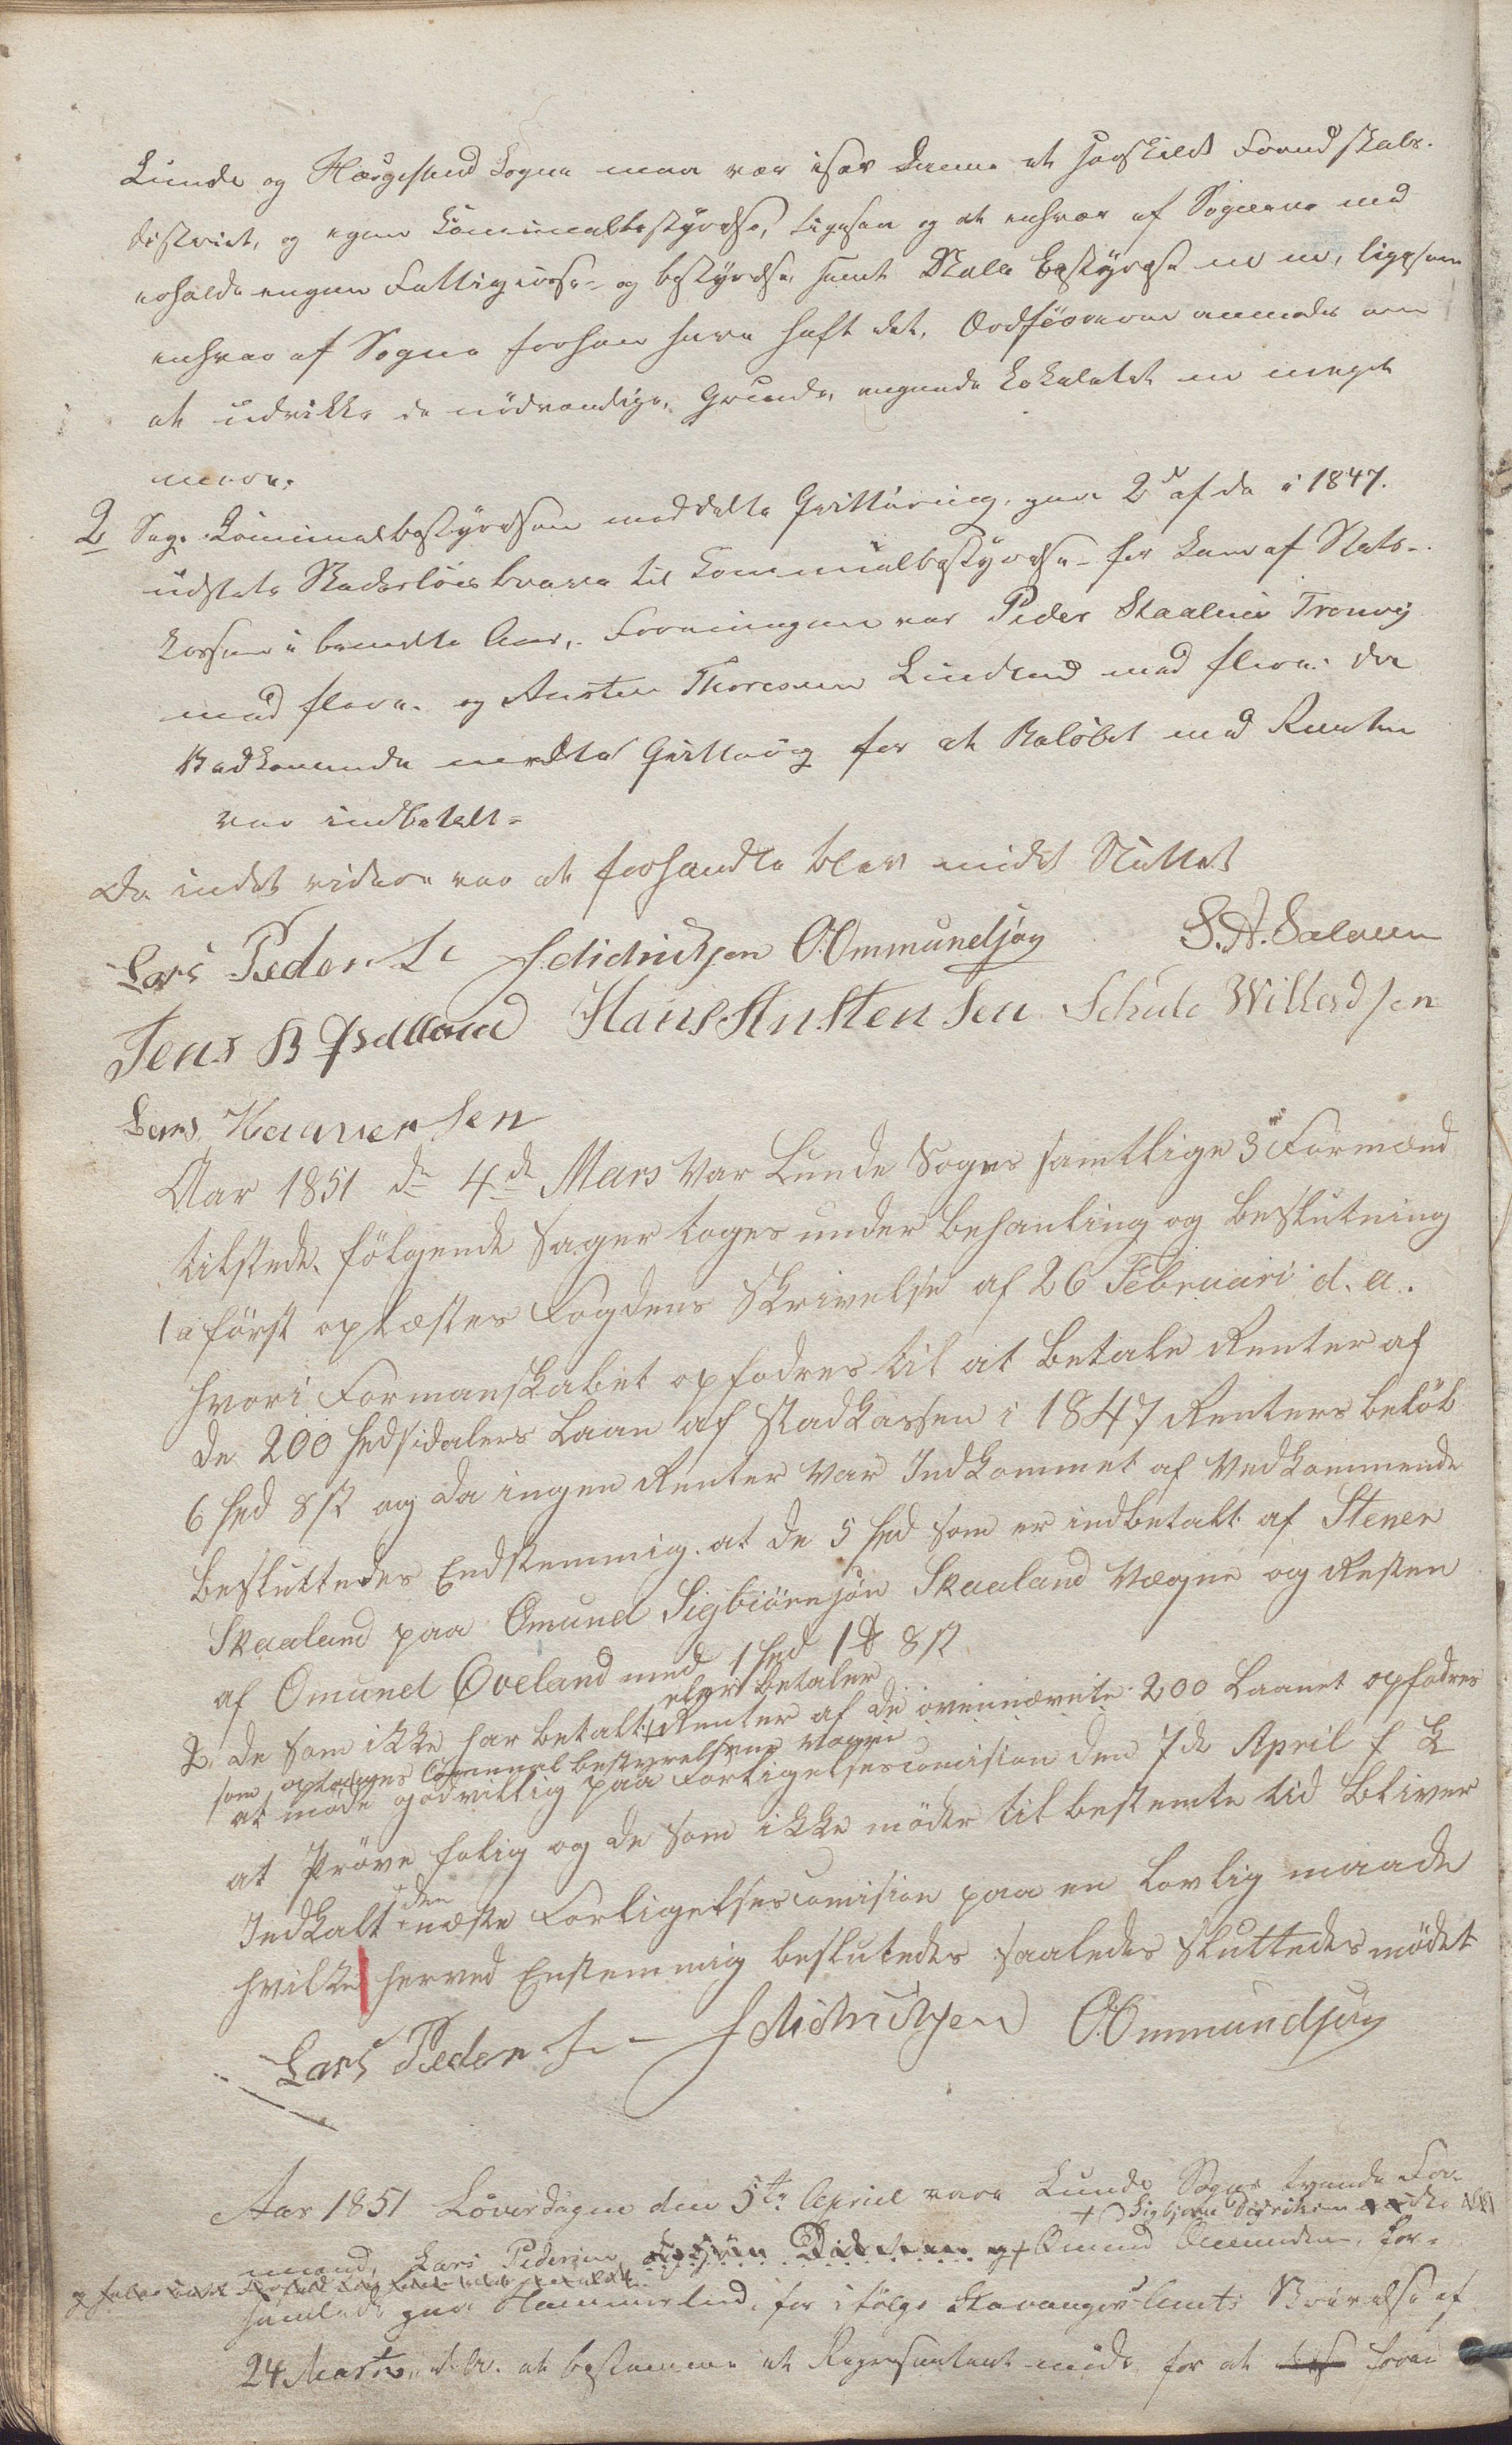 Lunde og Hæigestad Sogne maa vær især danne et særskildt Formdskabs-
district, og egen Communalbestyrelse, ligesaa og at enhver af Sognene maa
erholde engen Fattigcasse- og bestyrelse, samt Skole bestyrelse m m, ligesom
enhver af Sogne forhen have haft det, Ordføreren anmodes om
at udvikle de nødvendige Grunde, angaaende Lokalitet m meget
mere.
2 Sag. Communalbestyrelsen meddelte Qvittering paa 2de af de i 1847
udstete Skadesløsbreve til Communalbestyrelse for Laan af Stats-
kassen i bemeldte Aar, Foreningen var Peder Staalesen Tronvig
med flere og Austen Thoresen Lindland med flere da
Vedkommende meldte Qvittering for at Beløbet med Renten
var indbetalt-
Da indet videre var at forhandle blev mødet Sluttet
Lars Pedersen S. Didriksen O. Ommundsen S. A. Salvesen
Jens B Hans Austensen Schule Willadsen
Lars Haaversen
Aar 1851 dn 4de Mars Var Lunde Sogns samtlige 3 Formænd
tilstede. følgende Sager toges under behanling og beslutning
1a först oplæstes Fogdens Skrivelse af 26 Februari d. a.
hvori Formanskabet opfodres til at betale Renter af
de 200 Spesidalers Laan af Stadkassen i 1847 Renters beløb
6 Spd 8 s og da ingen Renter Var Indkommet af Vedkommende
besluttedes Endstemmig. at de 5 Spd som er indbetalt af Stener
Skaaland paa Omund Sigbiörnsön Skaaland Vægne og Resten
af Omund Eveland med 1 Spd 1 ₰ 8 s
2, de som ikke har betalt eler betaler Renter af de ovennævnte 200 Laanet opfodres
som optages Comunal bestyrelsens vægne
at møde godvillig paa Forligelsescomision den 7de April f k
at Prøve forlig og de som ikke møder til bestemte tid bliver
Indkalt + den næste Forligelsescomision paa en Lovlig maade
hvilke herved Enstemmig beslutedes saaledes sluttedes mødet
Lars Pedersen S Didriksen O. Ommundsen
Aar 1851 Løverdagen den 5te April vare Lunde Sogns tvende For-
+ Sigbjørn Didriksen mødte ikke
mænd, Lars Pedersen Sigbjörn Didriksen og + Omund Omundsen, for-
samlede paa Hammerlind, for ifølge Stavanger Amts Skrivelse af
24 Marts d. A. at bestemme et Representant møde for at foren